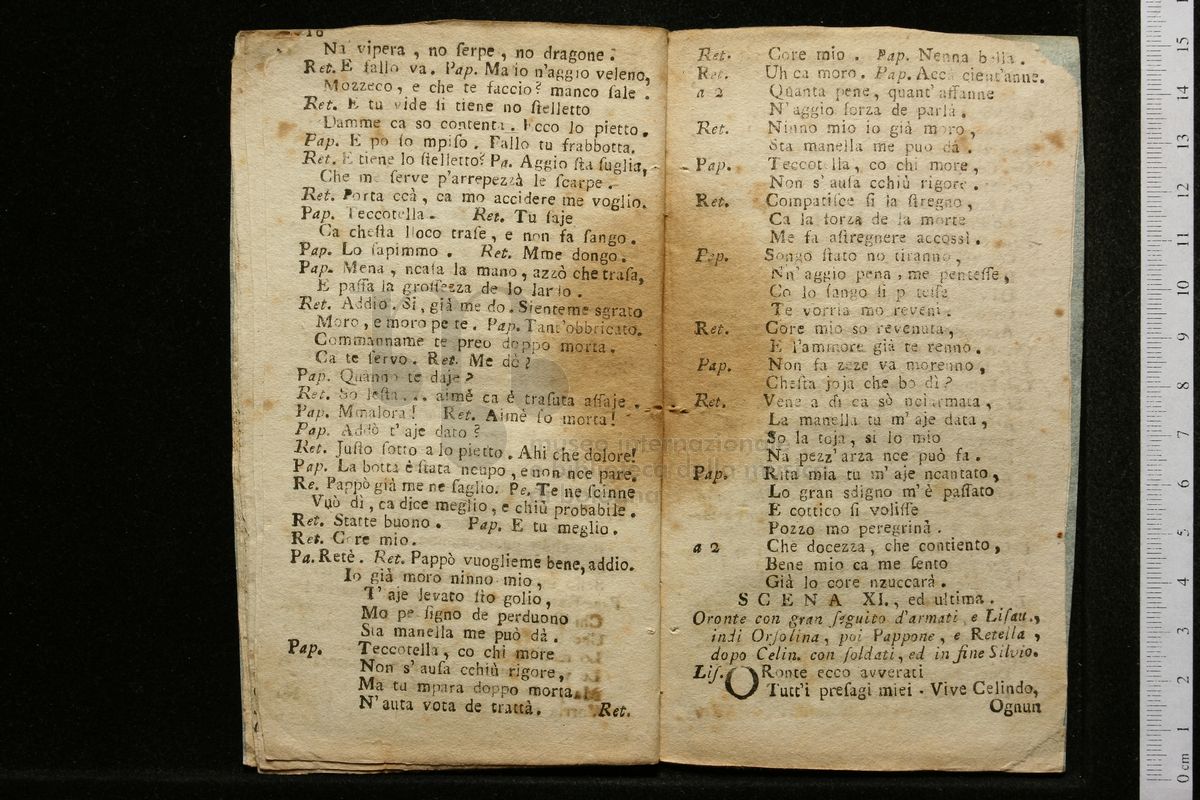 16
Na vipera, no ſerpe, no dragone.
Ret. E fallo va. Pap. Ma io n'aggio veleno,
Mozzeco, e che te faccio? manco ſale.
Ret. E tu vide ſi tiene no ſtelletto
Damme ca so contenta. Ecco lo pietto.
Pap. E po ſo mpiſo. Fallo tu frabbotta.
Ret. E tiene lo ſtelletto? Pa. Aggio ſta ſuglia,
Che me ſerve p'arrepezzà le ſcarpe.
Ret. Porta ccà, ca mo accidere me voglio.
Pap. Teccotella. Ret. Tu ſaje
Ca cheſta lloco traſe, e non fa ſango.
Pap. Lo ſapimmo. Ret. Mme dongo.
Pap. Mena, ncaſa la mano, azzò che traſa,
E paſſa la groſſezza de lo lardo.
Ret. Addio. Si, già me do. Sienteme sgrato
Moro, e moro pe te. Pap. Tant'obbricato.
Commanname te preo doppo morta.
Ca te ſervo. Ret. Me dò?
Pap. Quanno te daje?
Ret. So leſta... aimè ca è traſuta aſſaje.
Pap. Mmalora! Ret. Aimè ſo morta!
Pap. Addò t'aje dato?
Ret. Juſto ſotto a lo pietto. Ahi che dolore!
Pap. La botta è ſtata ncupo, e non nce pare.
Re. Pappò già me ne ſaglio. Pe. Te ne ſcinne
Vuò dì, ca dice meglio, e chiù probabile.
Ret. Statte buono. Pap. E tu meglio.
Ret. Core mio.
Pa. Retè. Ret. Pappò vuoglieme bene, addio.
Io già moro ninno mio,
T'aje levato ſto golio,
Mo pe ſigno de perduono
Sta manella me può dà.
Pap. Teccotella, co chi more
Non s'auſa cchiù rigore,
Ma tu mpara doppo morta
N'auta vota de trattà.
Ret.
Ret. Core mio. Pap. Nenna bella.
Ret. Uh ca moro. Pap. Accà cient'anne.
a 2 Quanta pene, quant'affanne
N'aggio forza de parlà.
Ret. Ninno mio io già moro,
Sta manella me può dà.
Pap. Teccotella, co chi more,
Non s'auſa cchiù rigore.
Ret. Compatiſce ſi la ſtregno,
Ca la forza de la morte
Me fa aſtregnere accossì.
Pap. Songo ſtato no tiranno,
Nn'aggio pena, me penteſſe,
Co lo ſango ſi poteſſe
Te vorria mo revenì.
Ret. Core mio so revenuta,
E l'ammore già te renno.
Pap. Non fa zeze va morenno,
Cheſta joja che bo dì?
Ret. Vene a dì ca sò nciarmata,
La manella tu m'aje data,
So la toja, si lo mio
Nà pezz'arza nce può fa.
Pap. Rita mia tu m'aje ncantato,
Lo gran sdigno m'è paſſato
E cottico ſi voliſſe
Pozzo mo peregrinà.
a 2 Che docezza, che contiento,
Bene mio ca me ſento
Già lo core nzuccarà.
SCENA XI., ed ultima.
Oronte con gran ſeguito d'armati, e Liſau.,
indi Orſolina, poi Pappone, e Retella,
dopo Celin. con ſoldati, ed in fine Silvio.
Liſ. ORonte ecco avverati
Tutt'i preſagi miei. Vive Celindo,
Ognun
museo internazionale
0 cm 1 2 3 4 5 6 7 8 9 10 11 12 13 14 15